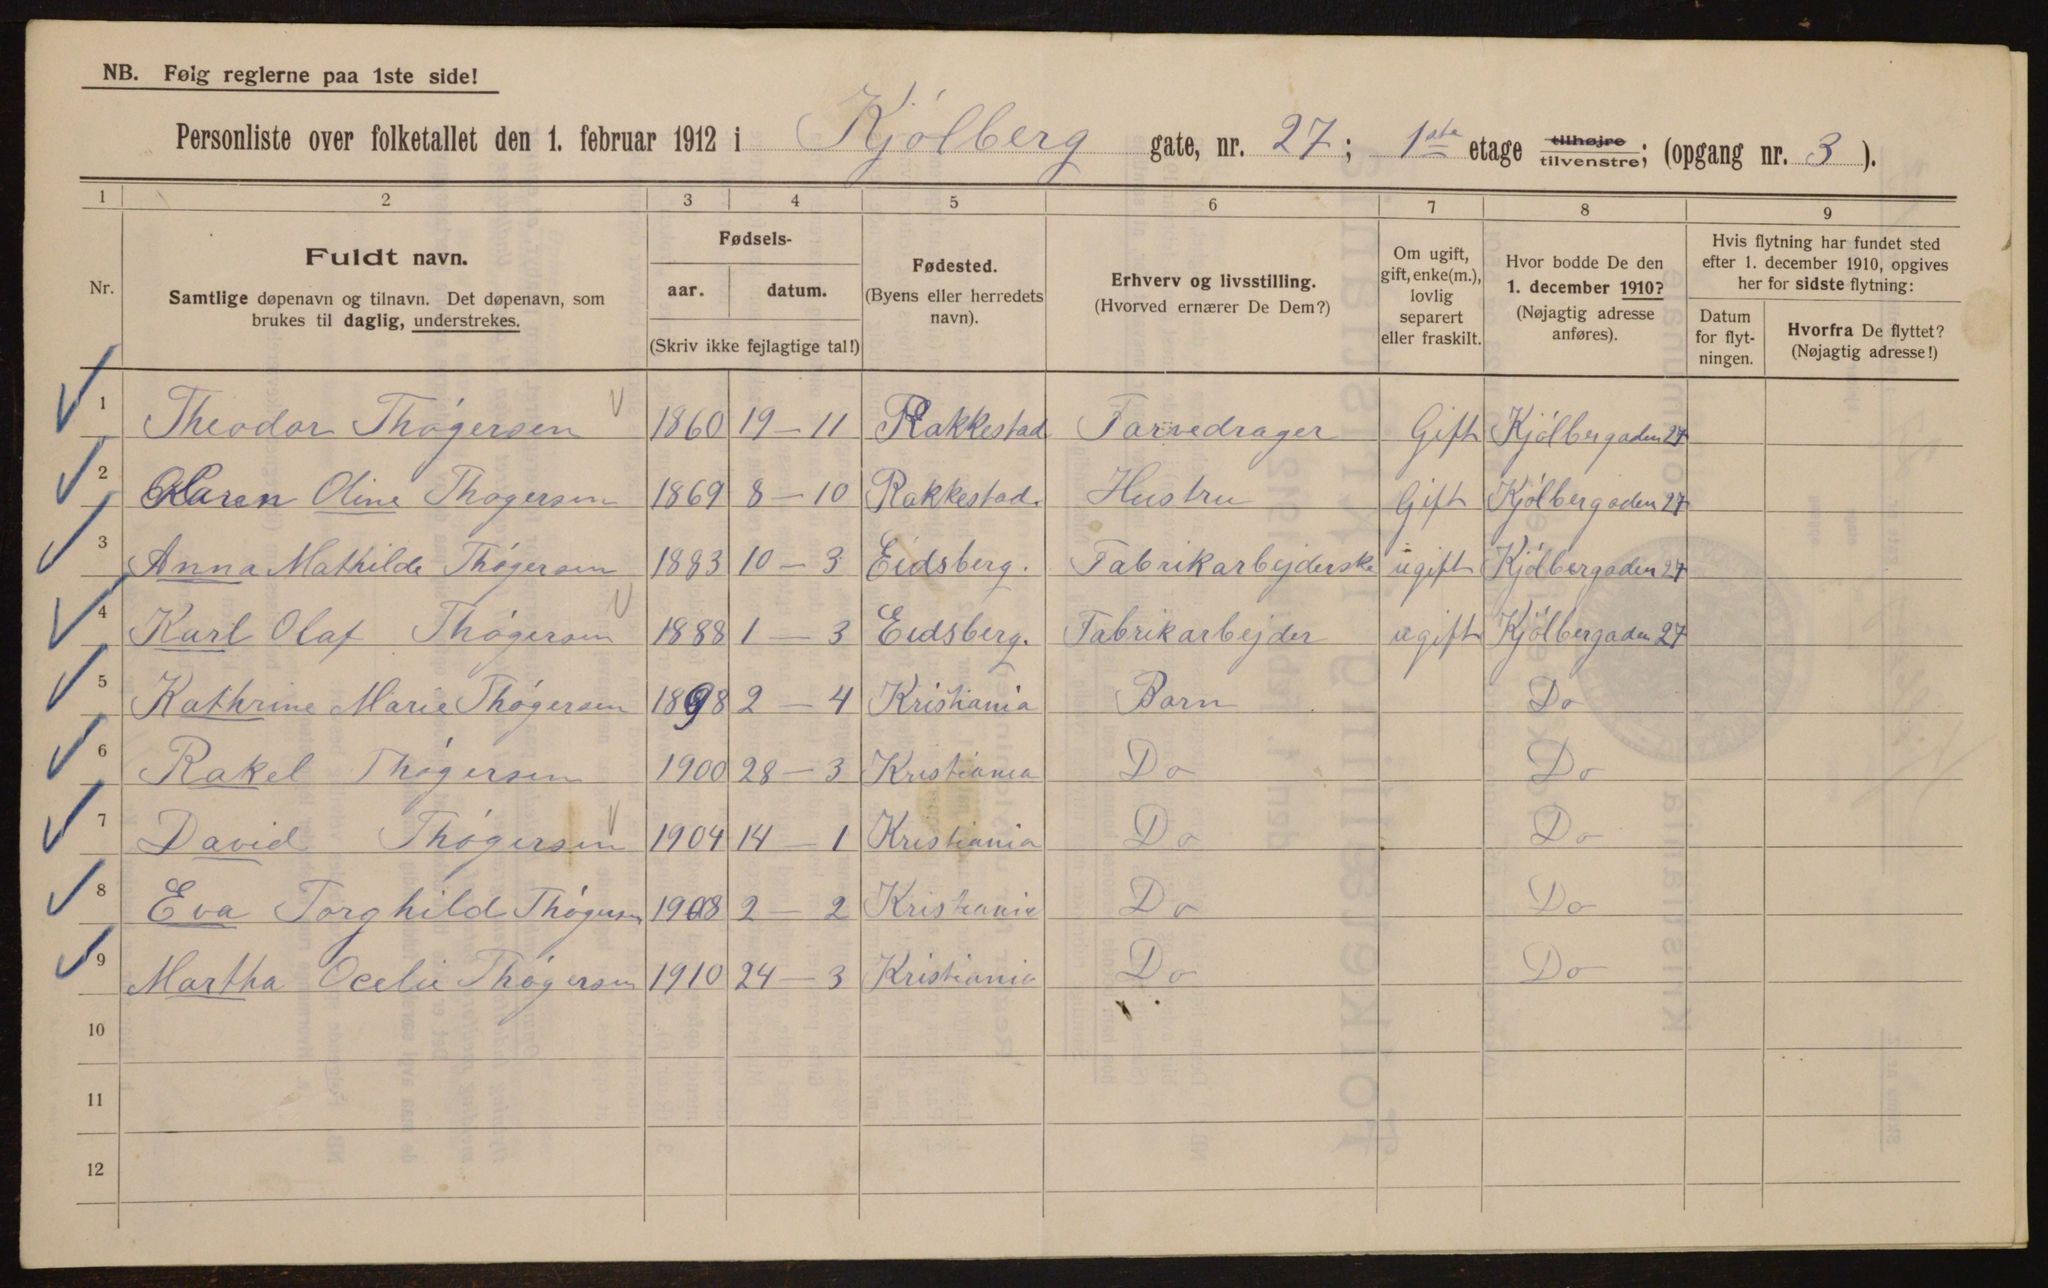 NB. Følg reglerne paa 1ste side!
Personliste over folketallet den 1. februar 1912 i Kjólberg gate, nr. 27; 1ste etage tilhøjre tilvenstre; (opgang nr. 3).
1 2 3 4 5 6 7 8 9
Nr.
Fuldt navn.
Samtlige døpenavn og tilnavn. Det døpenavn, som
brukes til daglig, understrekes.
Fødsels-
aar. datum.
(Skriv ikke fejlagtige tal!)
Fødested.
(Byens eller herredets
navn).
Erhverv og livsstilling.
(Hvorved ernærer De Dem?)
Om ugift,
gift, enke(m.),
lovlig
separert
eller fraskilt.
Hvor bodde De den
1. december 1910?
(Nøjagtig adresse
anføres).
Hvis flytning har fundet sted
efter 1. december 1910, opgives
her for sidste flytning:
Datum
for flyt-
ningen.
Hvorfra De flyttet?
(Nøjagtig adresse!)
1 Theodor Thógersen 1860 19 – 11 Rakkestad Farvedrager Gift Kjólbergaden 27
2 Karen Oline Thogersen 1869 8 – 10 Rakkestad. Hustru Gift Kjólbergaden 27
3 Anna Mathilde Thógersen 1883 10 – 3 Eidsberg. Fabrikarbejderske ugift Kjólbergaden 27
4 Karl Olaf Thógersen 1888 1 – 3 Eidsberg. Fabrikarbejder ugift Kjólbergaden 27
5 Kathrine Marie Thógersen 1898 2 – 4 Kristiania Barn Do
6 Rakel Thógersen 1900 28 – 3 Kristiania Do Do
7 David Thógersen 1904 14 – 1 Kristiania Do Do
8 Eva Torghild Thógersen 1908 2 – 2 Kristiania Do Do
9 Martha Ocelie Thógersen 1910 24 – 3 Kristiania Do Do
10
11
12